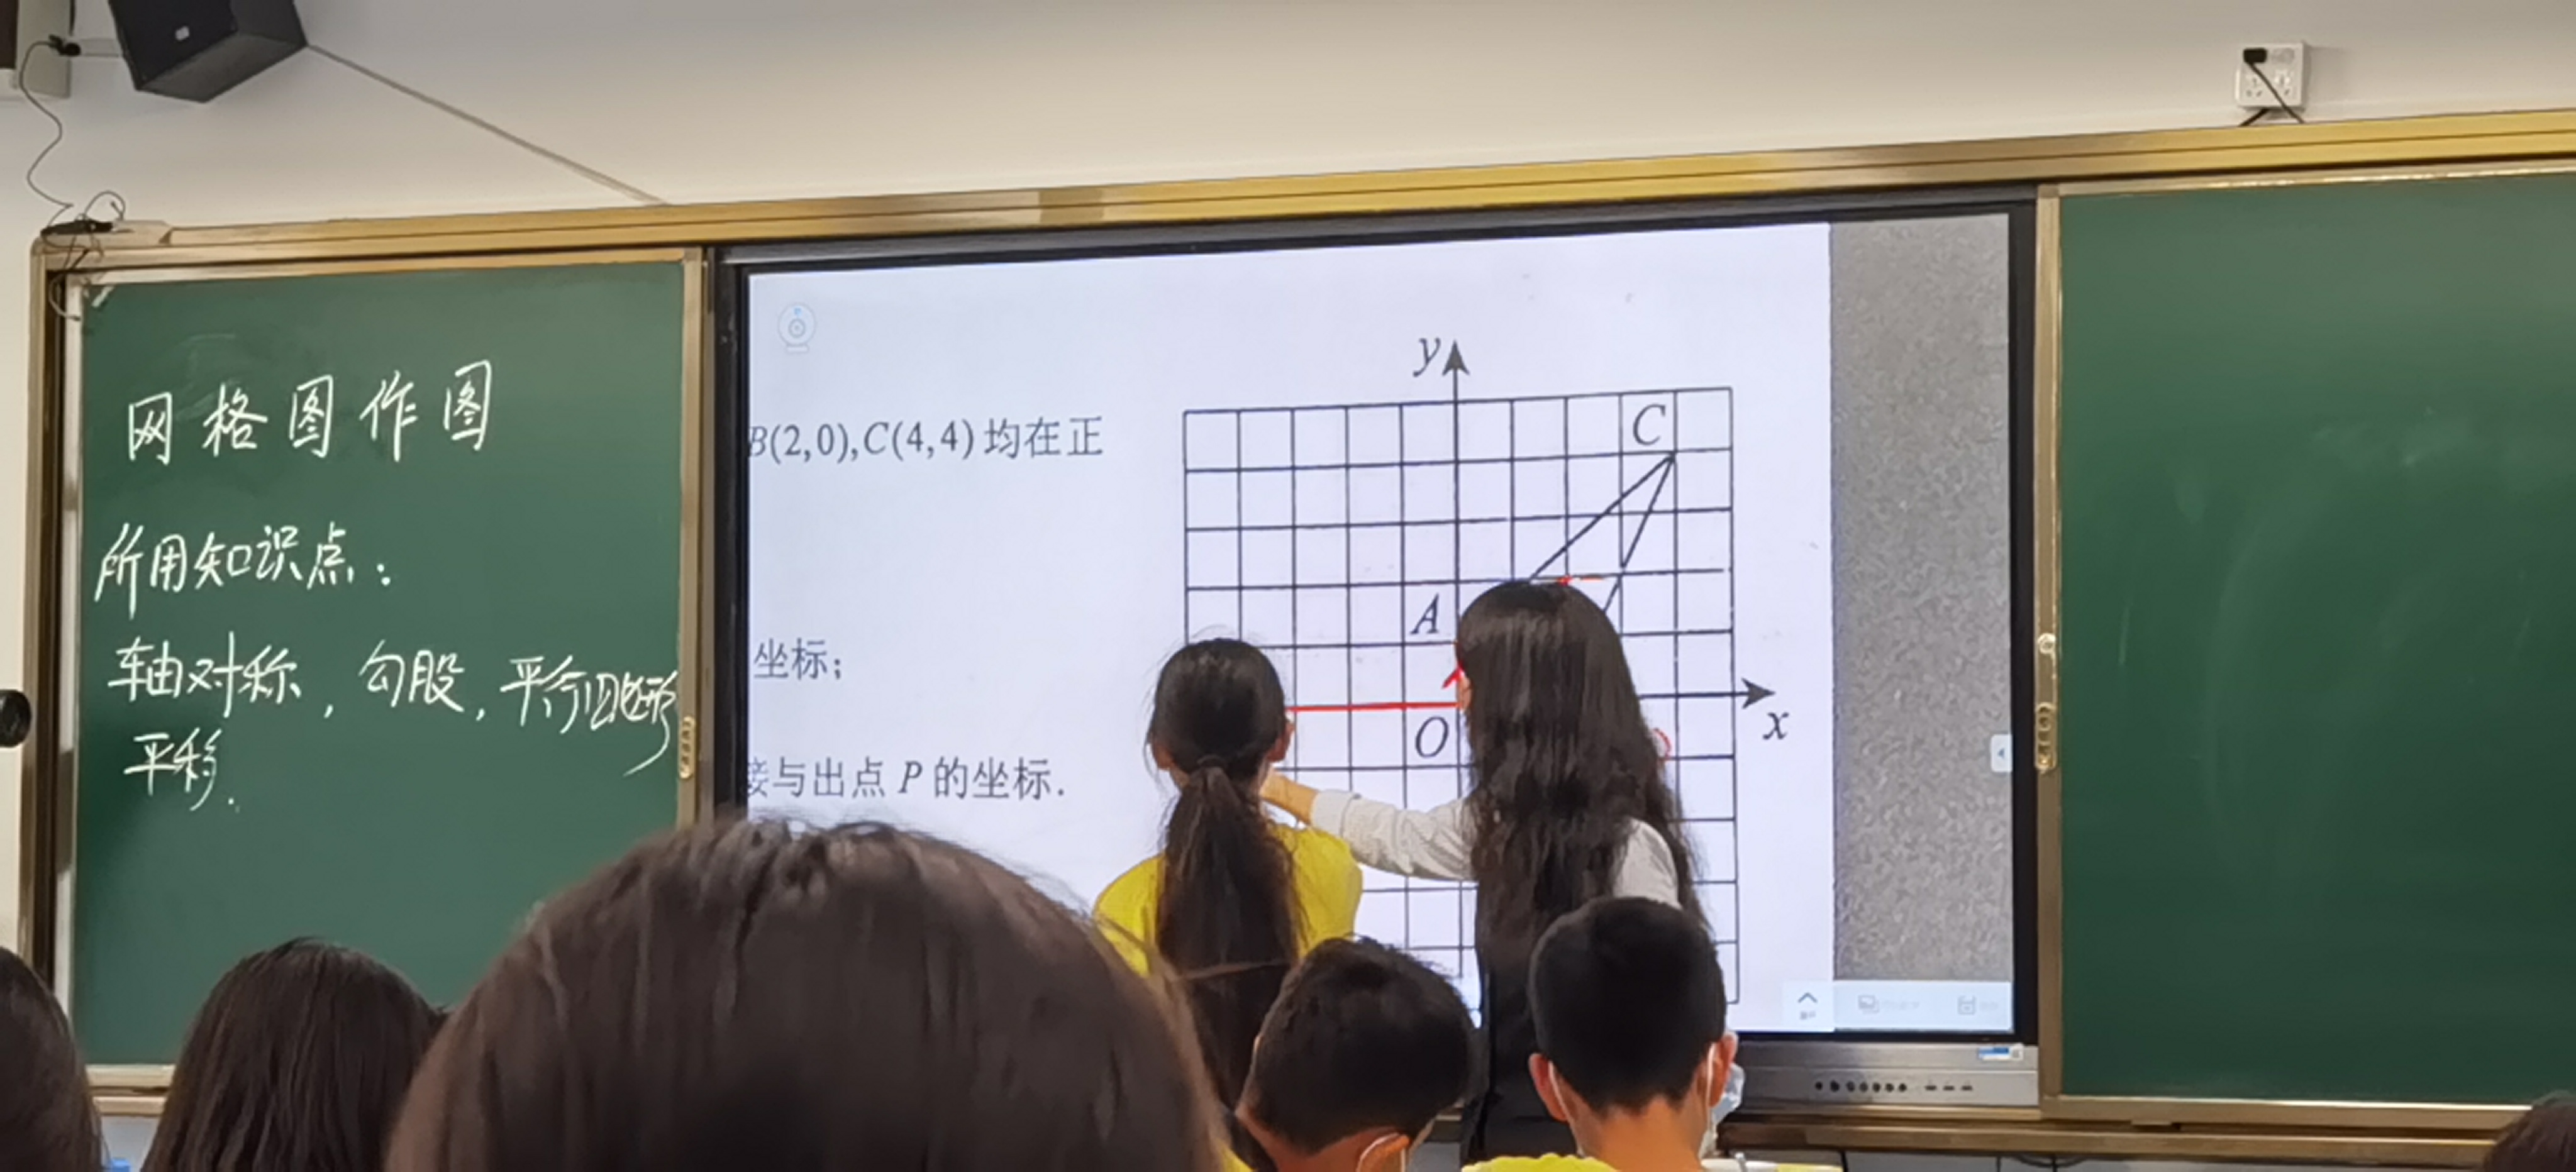 网格图作图
所用知识点：
轴对称，勾股，平行四边形
平移.
B(2,0),C(4,4)均在正
坐标;
接写出点 P 的坐标.
y
C
A
O
x